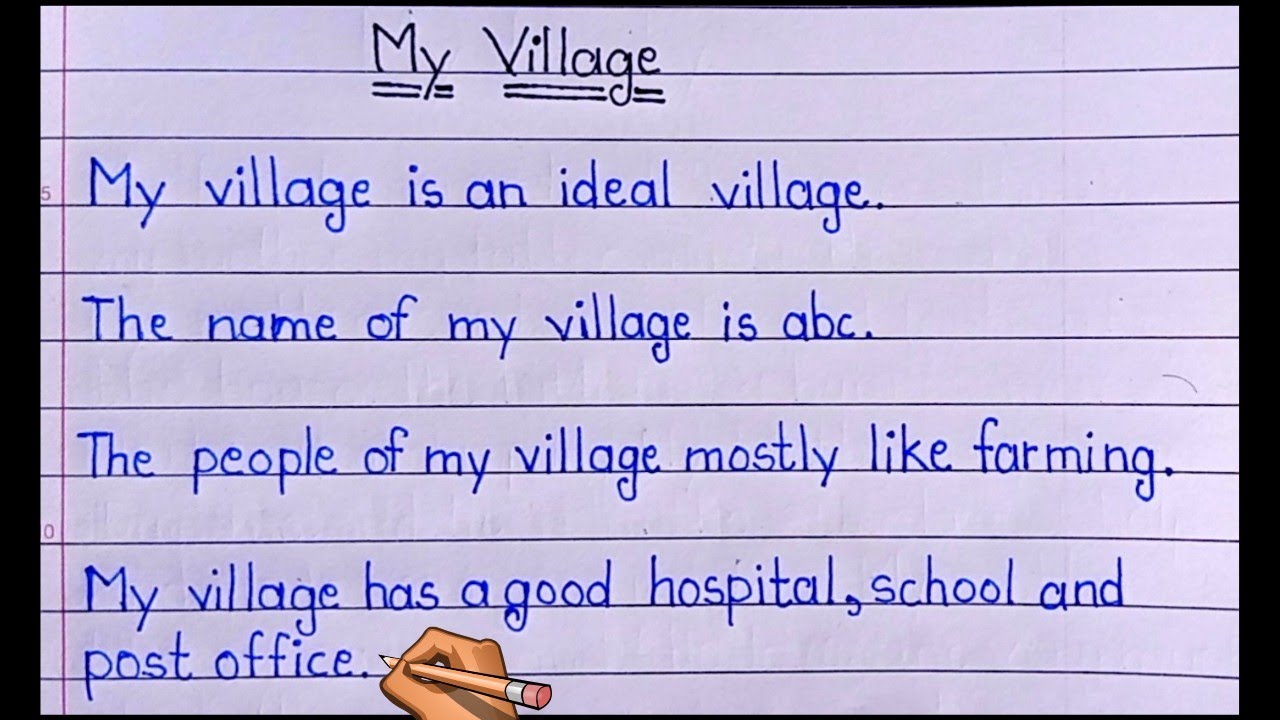 My Village
5
My village is an ideal village.
The name of my village is abc.
The people of my village mostly like farming.
0
My village has a good hospital, school and
post office.